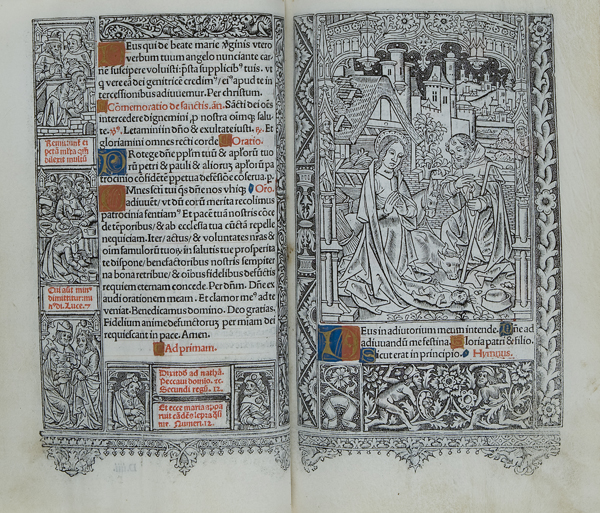 Deus qui de beate marie v̉ginis vtero
verbum tuum angelo nunciante car
ne suscipere voluisti: p̄sta supplicib⁹ tuis. vt
q̄ vere eā dei genitricē credim⁹/ ei⁹ apud te in
tercessionibus adiuuemur. Per christum.
Cōmemoratio de sanctis. añ. Sācti dei oēs
intercedere dignemini, p nostra omniū salu-
te. Letamini in dn̄o & exultate iusti.
gloriamini omnes recti corde. Oratio.
Protege dn̄e pplm̄ tuū & apl̓orum tuo
rū petri & pauli & alioꝝ apl̓oꝝ pa
trocinio cōfidētē ppetua defēsiōe cōserua. p.
Omnes sc̄i tui q̄s dn̄e nos vbiq; Oro.
adiuuēt/ vt dū eorū merita recolimus
patrocinia sentiam⁹. Et pacē tuā nostris cōce
de tēporibus/ & ab ecclesia tua cūctā repelle
nequiciam. Iter/ actus/ & voluntates nr̄as & o
im famulorū tuoꝝ in salutis tue prosperita
te dispone/ benefactoribus nostris sempiter
na bona retribue/ & oībus fidelibus defūctis
requiem eternam concede. Per dn̄m. Dn̄e ex
audi orationem meam. Et clamor me⁹ ad te
veniat. Benedicamus domino. Deo gratias.
Fidelium anime defunctoꝝ per miam dei
requiescant in pace. Amen.
Ad primam.
Remittunt̄ ei
pctā
Cui aūt min⁹
dimittitur: mi
Luce. 7
Dixit dd̄ ad nathā.
Peccaui domino. 2c.
Secundi regū. 12.
Et ecce maria appa
ruit cādēs lepra q̄si
nix. Numeri. 12.
Deus in adiutorium meum intende. Dn̄e ad
adiuuandū me festina. Gloria patri & filio.
Sicut erat in principio. Hymnus.